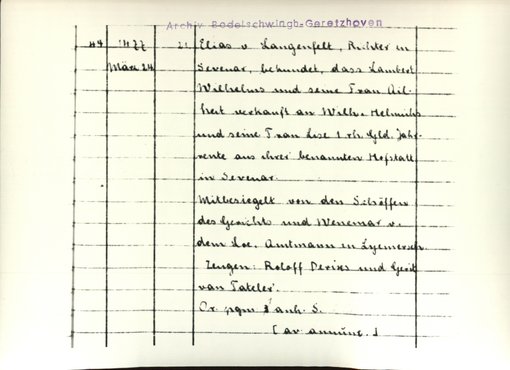 Archiv Bodelschwingh-Geretzhoven
44 1477 21. Elias v. Langenfelt, Richter in
März 24 Sevenar, bekundet, dass Lambert
Wilhelms und seine Frau Ail-
heit verkauft an Willh. Helmichs
und seine Frau Lise 1 rh. Gld. Jahr-
rente aus ihrer benannten Hofstatt
in Sevenar.
Mitbesiegelt von den Schöffen
des Gerichts und Wenemar v.
dem Loe, Amtmann in Lyemersch.
Zeugen: Roloff Derixs und Gerit
van Tateler.
Or. pgm. anh. S.
[av. anninc.]